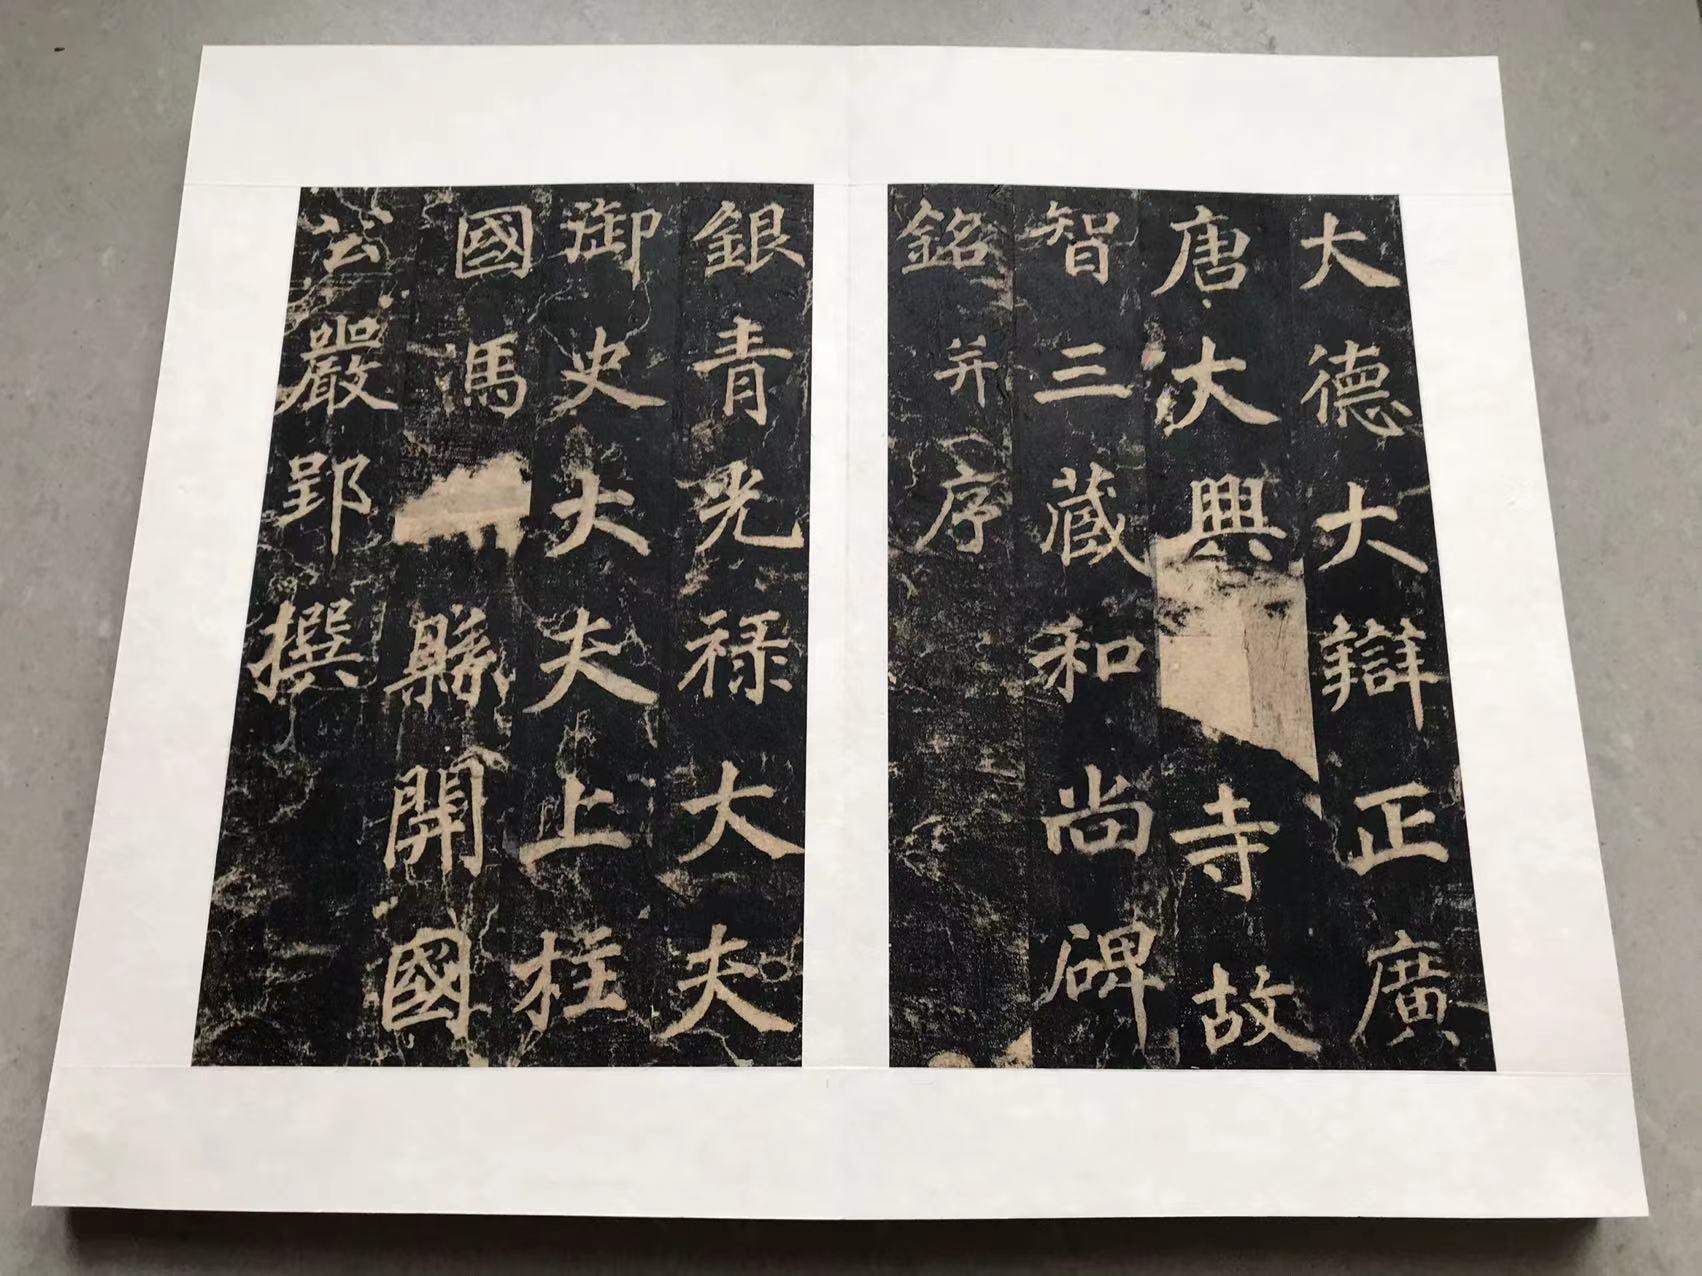 大德大辯正廣
唐大興寺故
智三藏和尚碑
銘并序
銀青光禄大夫
御史大夫上柱
國馮縣開國
公嚴郢撰